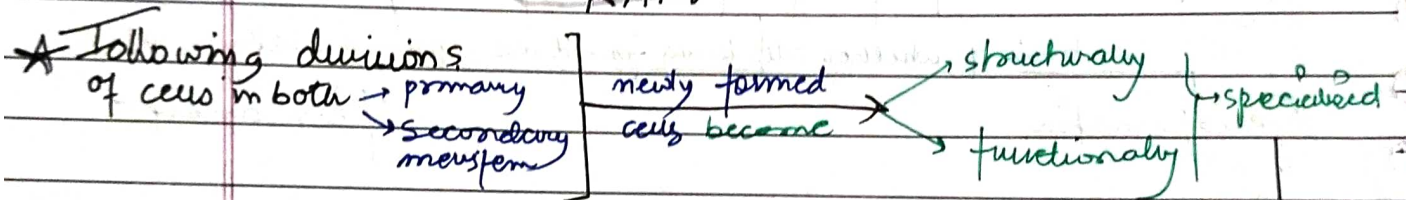 ★ Following divisions
of cells in both → primary
→ secondary
meristem
newly formed
cells become
→ structurally
→ functionally
→ specialised